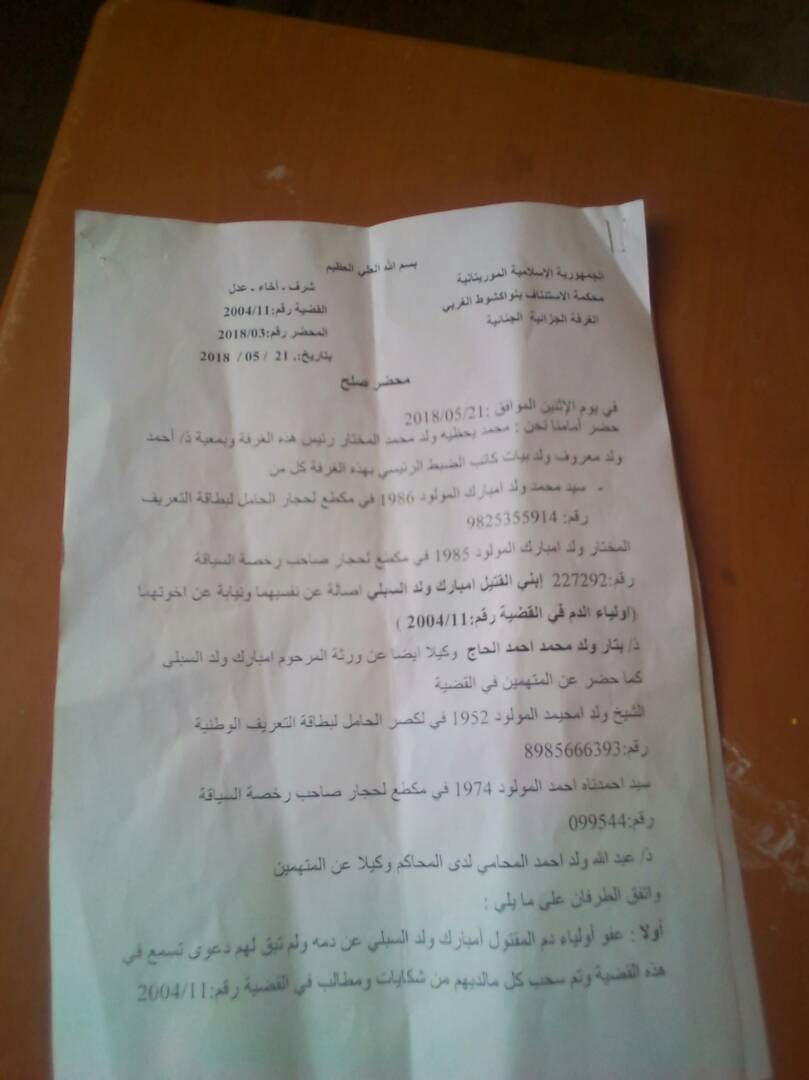 بسم الله العلي العظيم
الجمهورية الإسلامية الموريتانية
محكمة الاستئناف بنواكشوط الغربي
الغرفة الجزائية الجنائية
شرف - أخاء - عدل
القضية رقم:2004/11
المحضر رقم:2018/03
بتاريخ:. 21 / 05 / 2018
محضر صلح
في يوم الإثنين الموافق :2018/05/21
حضر أمامنا نحن : محمد يحظيه ولد محمد المختار رئيس هذه الغرفة وبمعية ذ/ أحمد
ولد معروف ولد بيات كاتب الضبط الرئيسي بهذه الغرفة كل من
- سيد محمد ولد امبارك المولود 1986 في مكطع لحجار الحامل لبطاقة التعريف
رقم: 9825355914
المختار ولد امبارك المولود 1985 في مكطع لحجار صاحب رخصة السياقة
رقم:227292 إبني القتيل امبارك ولد السبلي اصالة عن نفسيهما ونيابة عن اخوتهما
(اولياء الدم في القضية رقم:2004/11 )
ذ/ بتار ولد محمد احمد الحاج وكيلا ايضا عن ورثة المرحوم امبارك ولد السبلي
كما حضر عن المتهمين في القضية
الشيخ ولد امحيمد المولود 1952 في لكصر الحامل لبطاقة التعريف الوطنية
رقم:8985666393
سيد احمدناه احمد المولود 1974 في مكطع لحجار صاحب رخصة السياقة
رقم:099544
ذ/ عبد الله ولد احمد المحامي لدى المحاكم وكيلا عن المتهمين
واتفق الطرفان على ما يلي :
أولا : عفو أولياء دم المقتول أمبارك ولد السبلي عن دمه ولم تبق لهم دعوى تسمع في
هذه القضية وتم سحب كل مالديهم من شكايات ومطالب في القضية رقم:2004/11